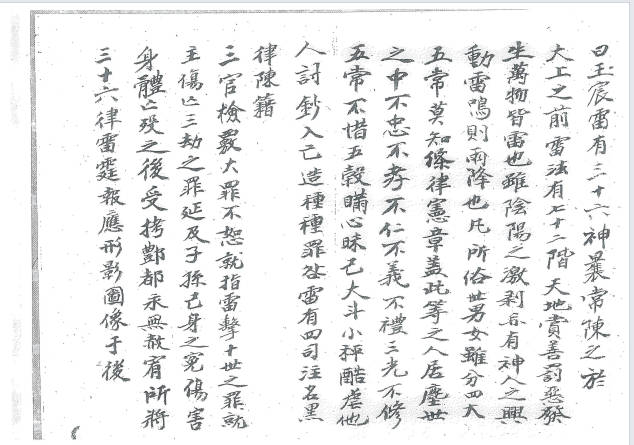 曰玉宸雷有三十六神曩常陳之於
大上之前雷法有七十二階天地賞善罰惡發
生萬物皆雷也雖陰陽之激剥亦有神人之興
動雷鳴則雨降也凡所俗世男女雖分四大
五常莫知條律憲章盖此等之人居塵世
之中不忠不孝不仁不義不禮三光不修
五常不惜五穀瞞心昧己大斗小秤酷虐他
人討鈔入己造種種罪咎雷有四司注名黑
律陳籍
三官檢覈大罪不恕就指雷擊十世之罪就
主傷亡三劫之罪延及子孫己身之寃傷害
身體亡殁之後受拷酆都永無赦宥所將
三十六律雷霆報應形影圖像于後